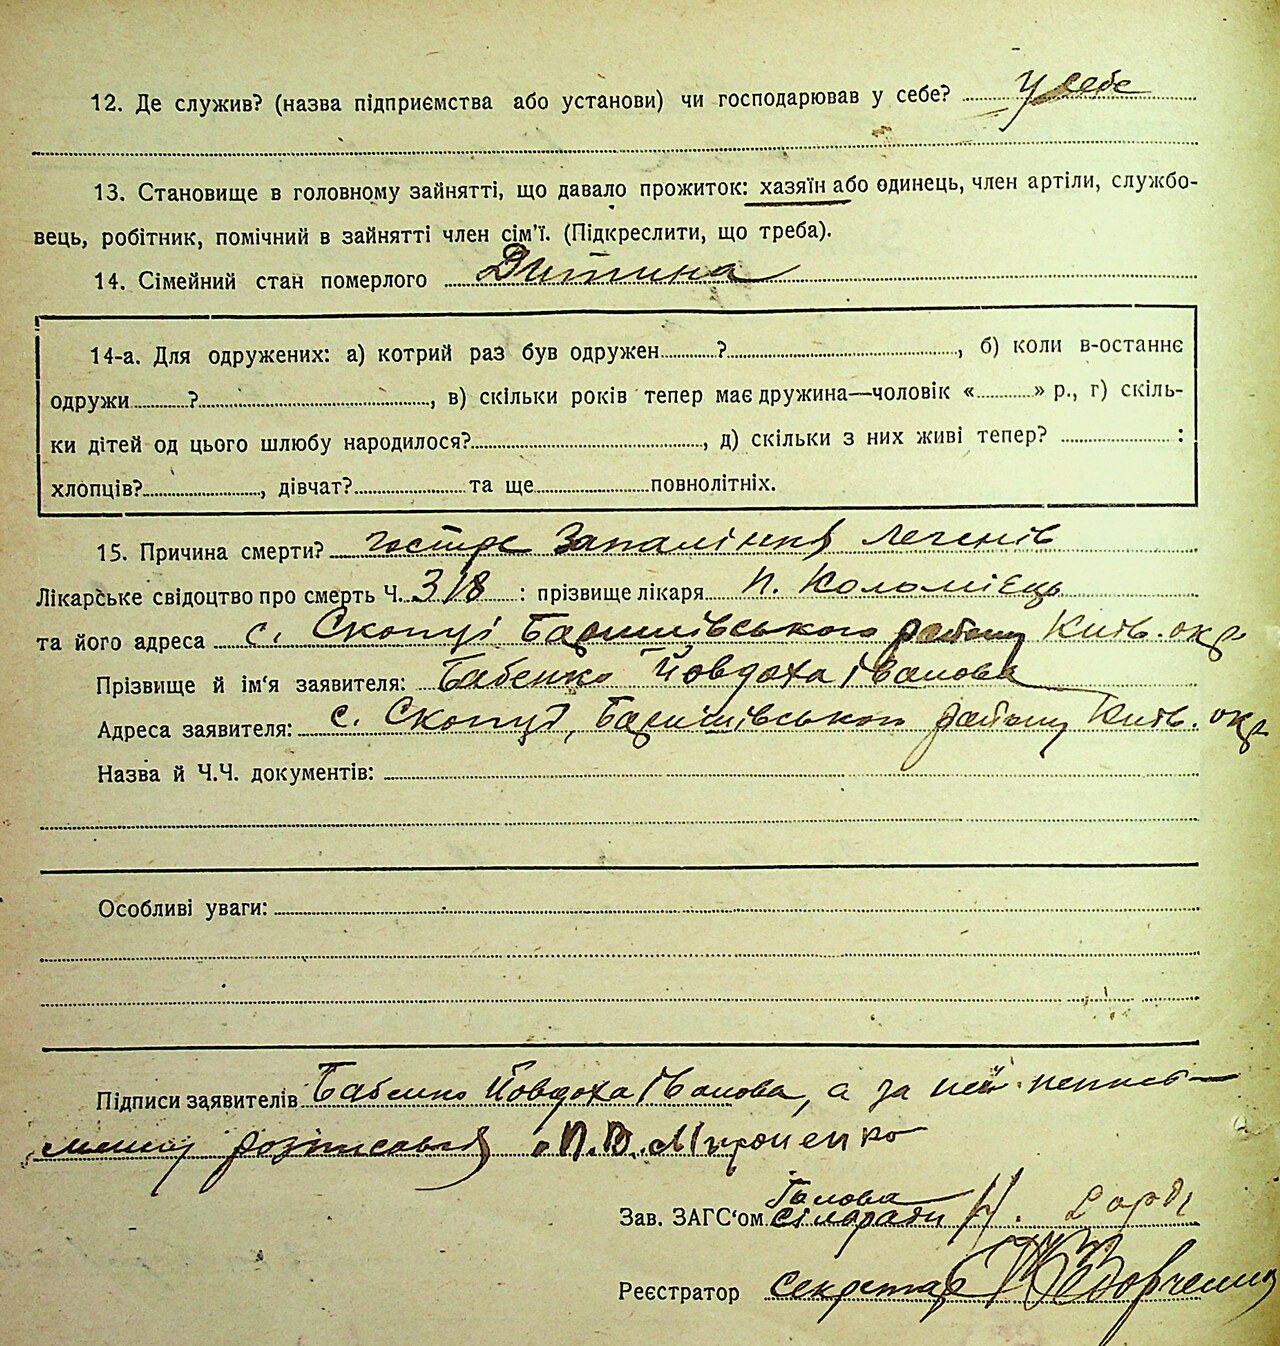 12. Де служив? (назва підприємства або установи) чи господарював у себе? у себе
13. Становище в головному зайнятті, що давало прожиток: хазяїн або одинець, член артіли, службо-
вець, робітник, помічний в зайнятті член сім'ї. (Підкреслити, що треба).
14. Сімейний стан померлого Дитина
14-а. Для одружених: а) котрий раз був одружен ? , б) коли в-останнє
одружи ? , в) скільки років тепер має дружина—чоловік « » р., г) скіль-
ки дітей од цього шлюбу народилося? , д) скільки з них живі тепер? :
хлопців? , дівчат? та ще повнолітніх.
15. Причина смерти? гостре запаління легенів
Лікарське свідоцтво про смерть Ч. 318 : прізвище лікаря П. Коломієць
та його адреса с. Скопці Баришівського району Київ. окр
Прізвище й ім'я заявителя: Бабенко Йовдоха Іванова
Адреса заявителя: с. Скопці, Баришівського району Київ. окр
Назва й Ч.Ч. документів:
Особливі уваги:
Підписи заявителів Бабенко Йовдоха Іванова, а за неї непись-
менну розписався П.В. Мироненко
Голова
Зав. ЗАГС'ом сілради
Реєстратор секретар